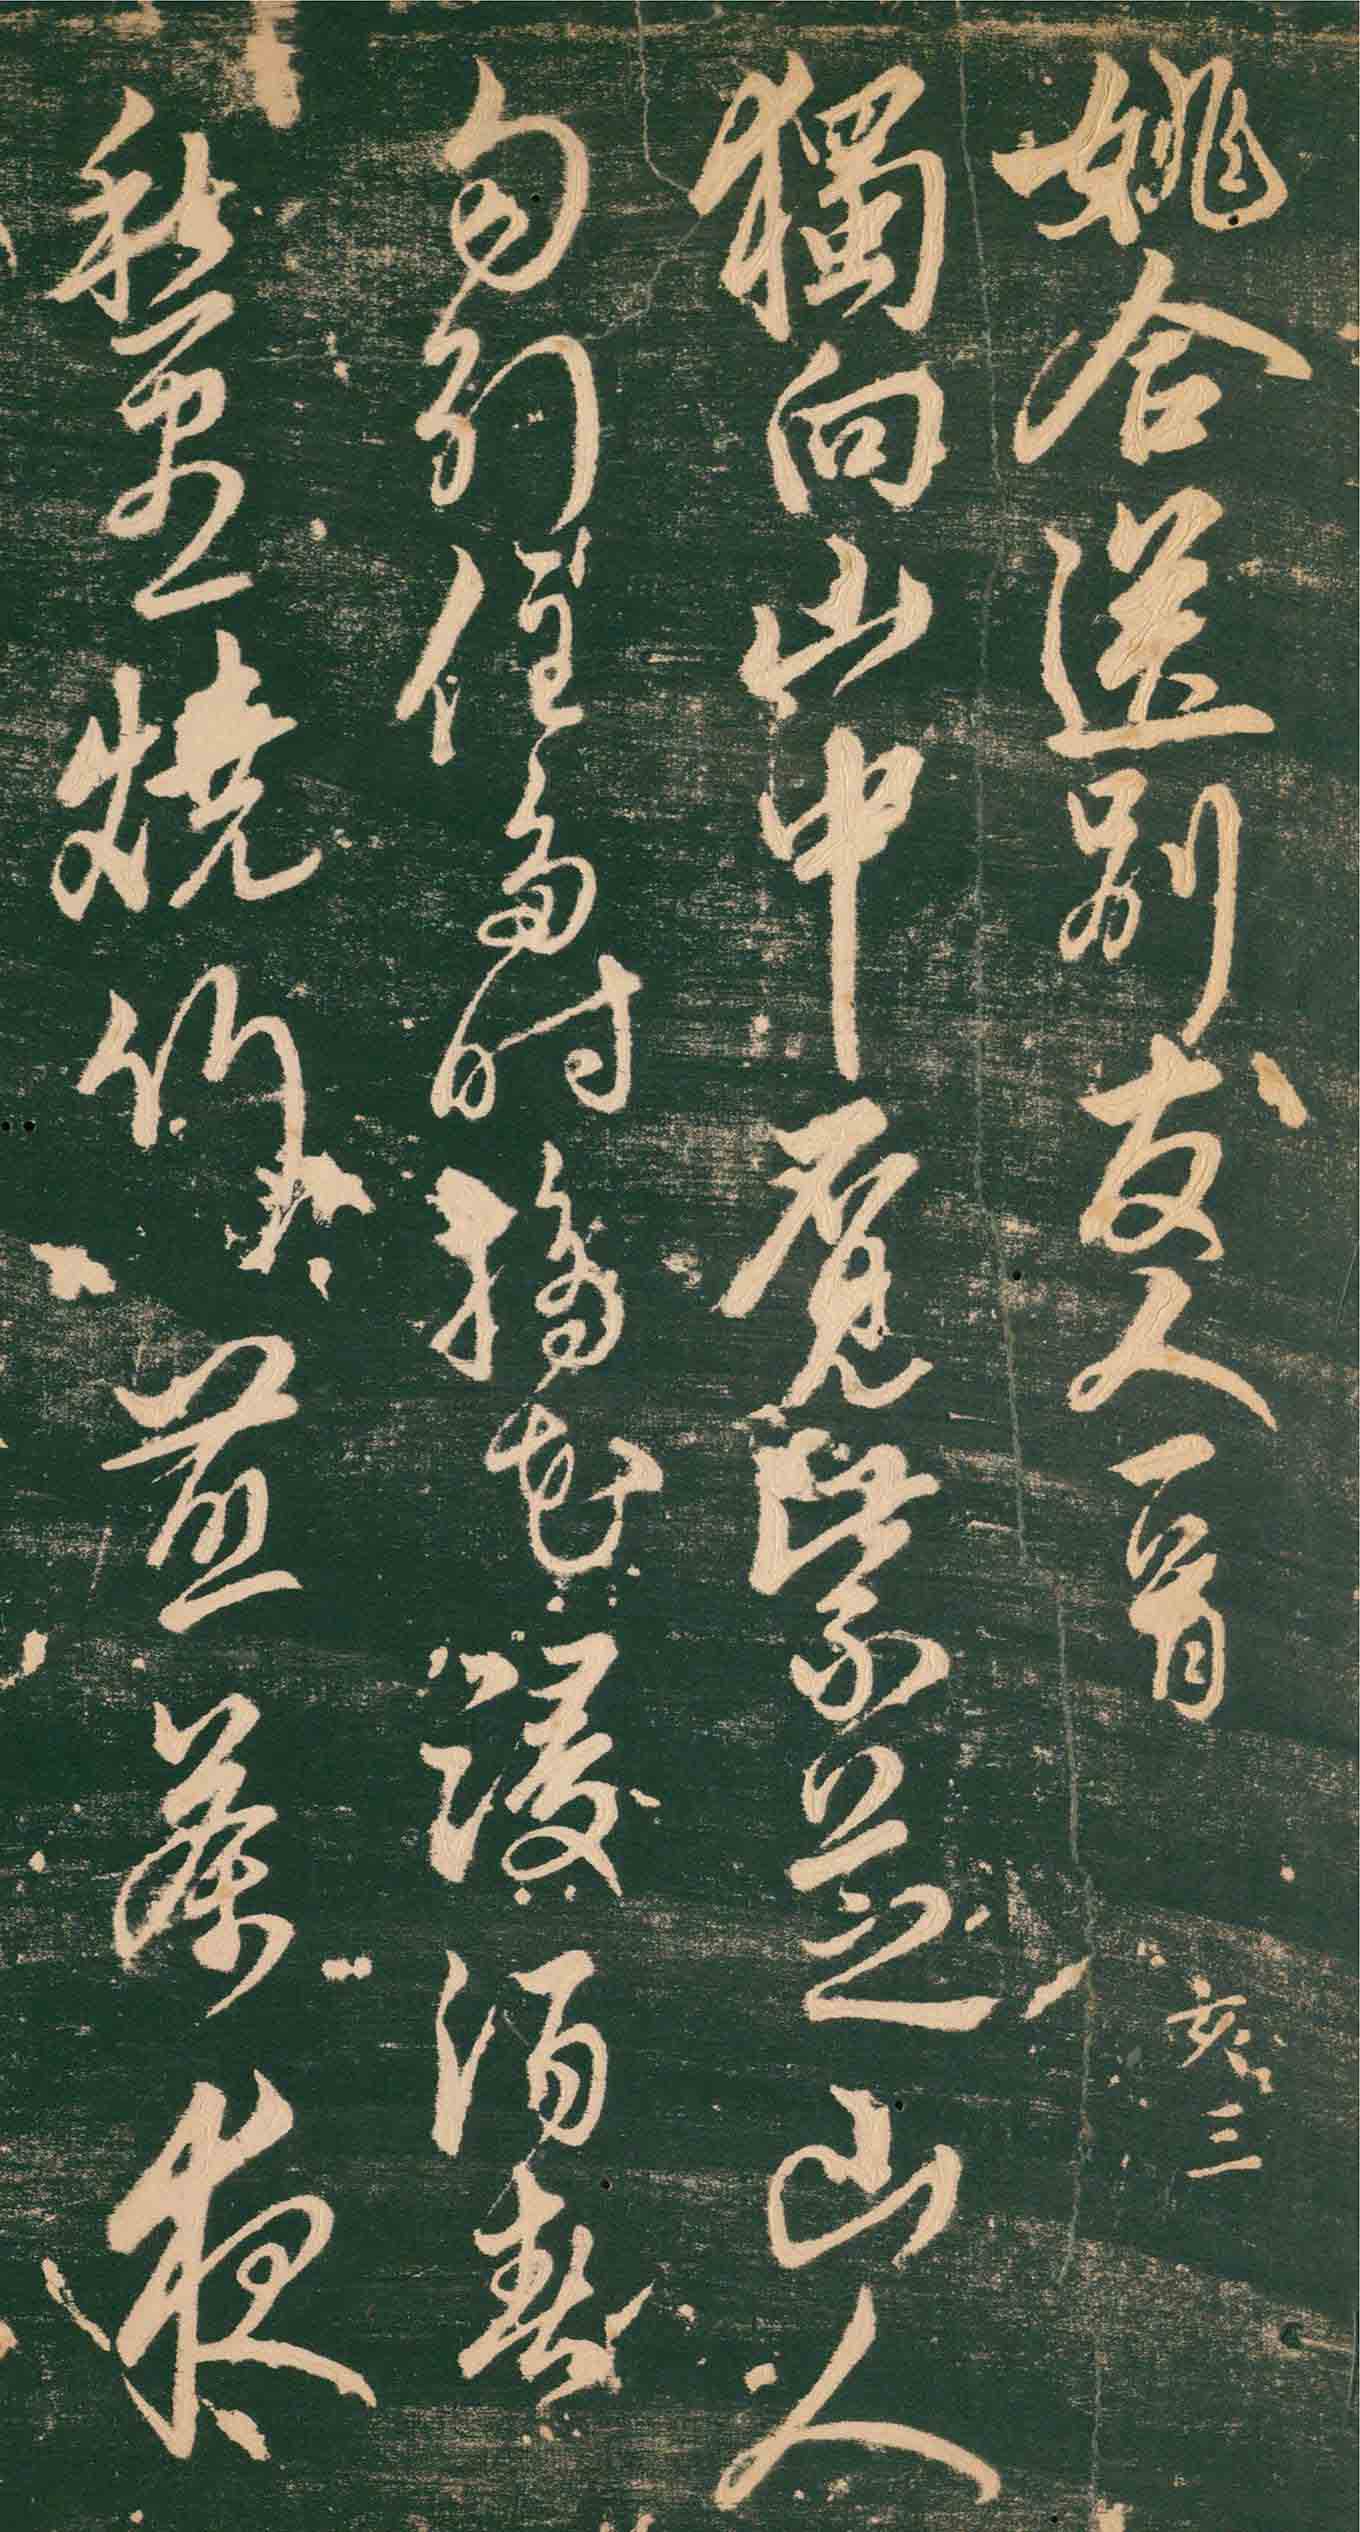 姚合送別友人一首 亥三
獨向山中覓紫芝山人
勾引住多時摘花浸酒春
愁盡燒竹煎茶夜